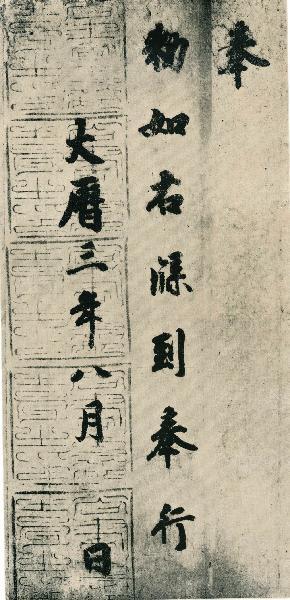 奉
勑如右牒到奉行
大曆三年八月 日